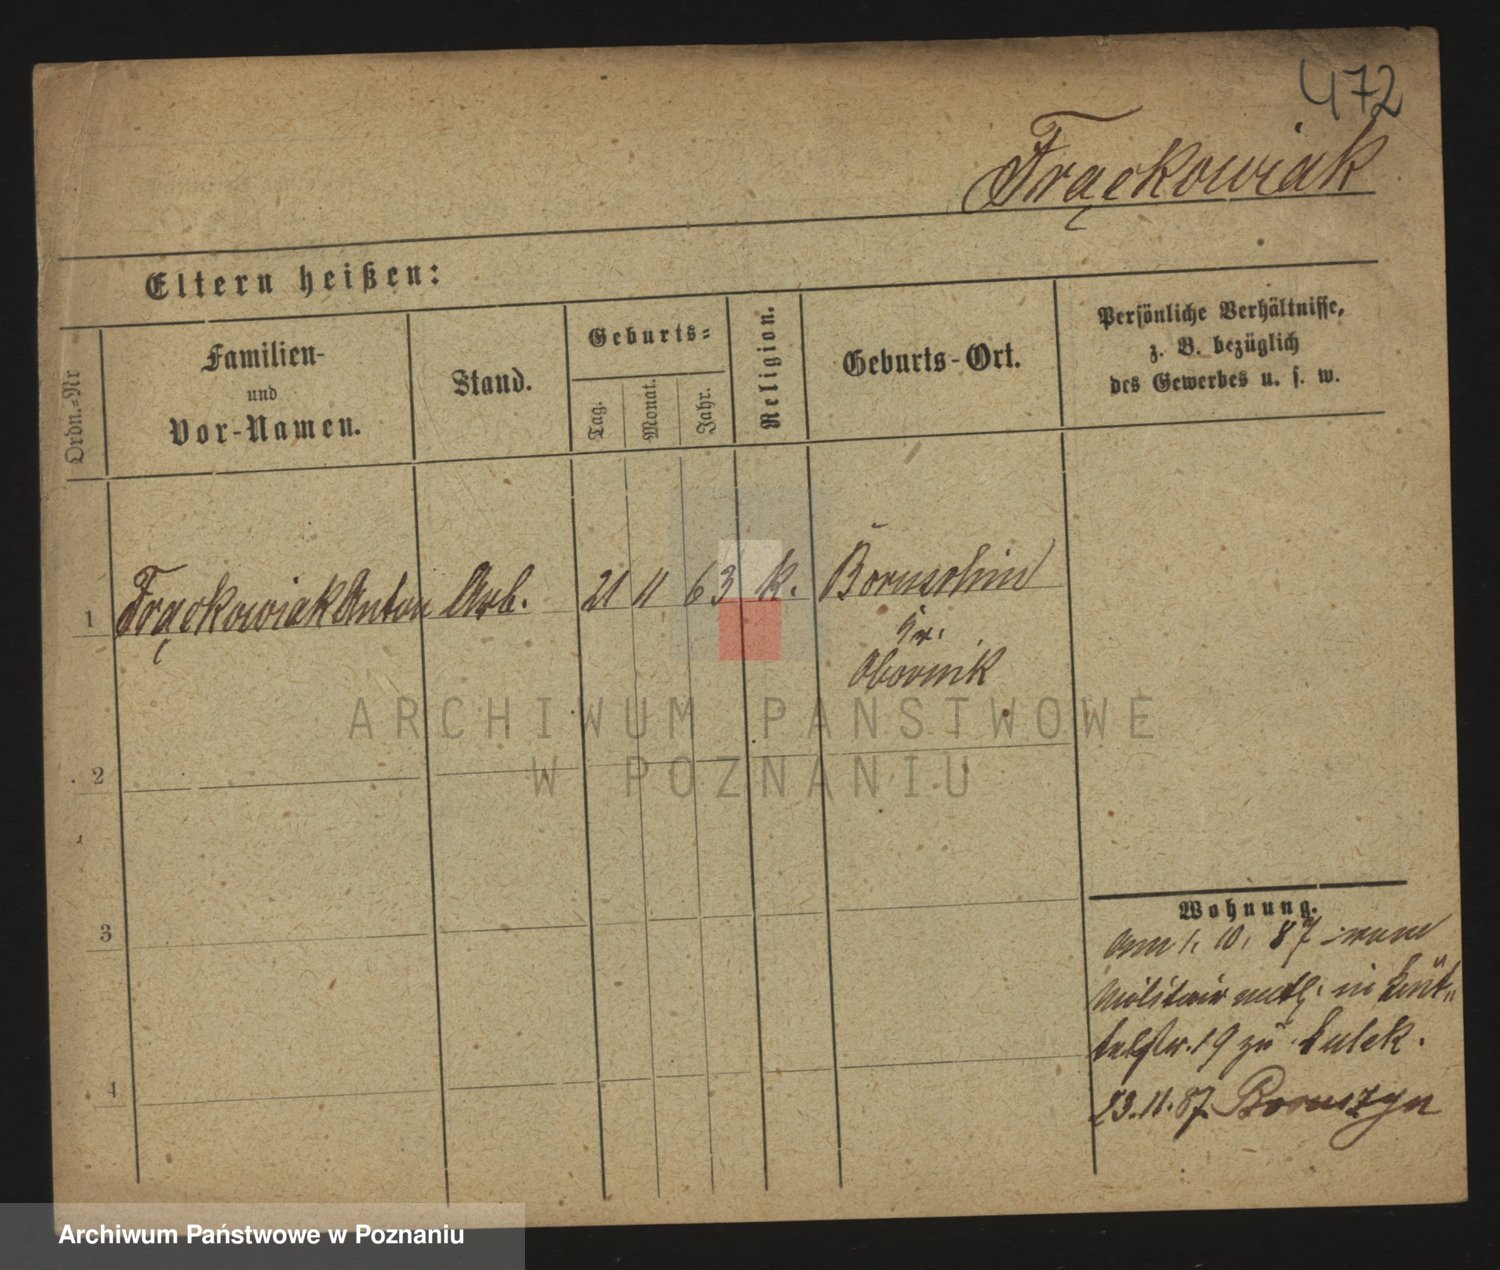 472
Frąckowiak
Eltern heißen:
Ordn.=Nr
Familien-
und
Vor-Namen.
Stand.
Geburts=
Tag.
Monat.
Jahr.
Religion.
Geburts-Ort.
Persönliche Verhältnisse,
z. B. bezüglich
des Gewerbes u. s. w.
1 Frąckowiak Anton Arb. 21 11 63 k. Boruschin
Kr.
Obornik
ARCHIWUM PAŃSTWOWE
W POZNANIU
2
3
4
Wohnung.
Am 1. 10. 87 vom
Militair entl. in
19 zu
23.11.87. Boruszyn
Archiwum Państwowe w Poznaniu